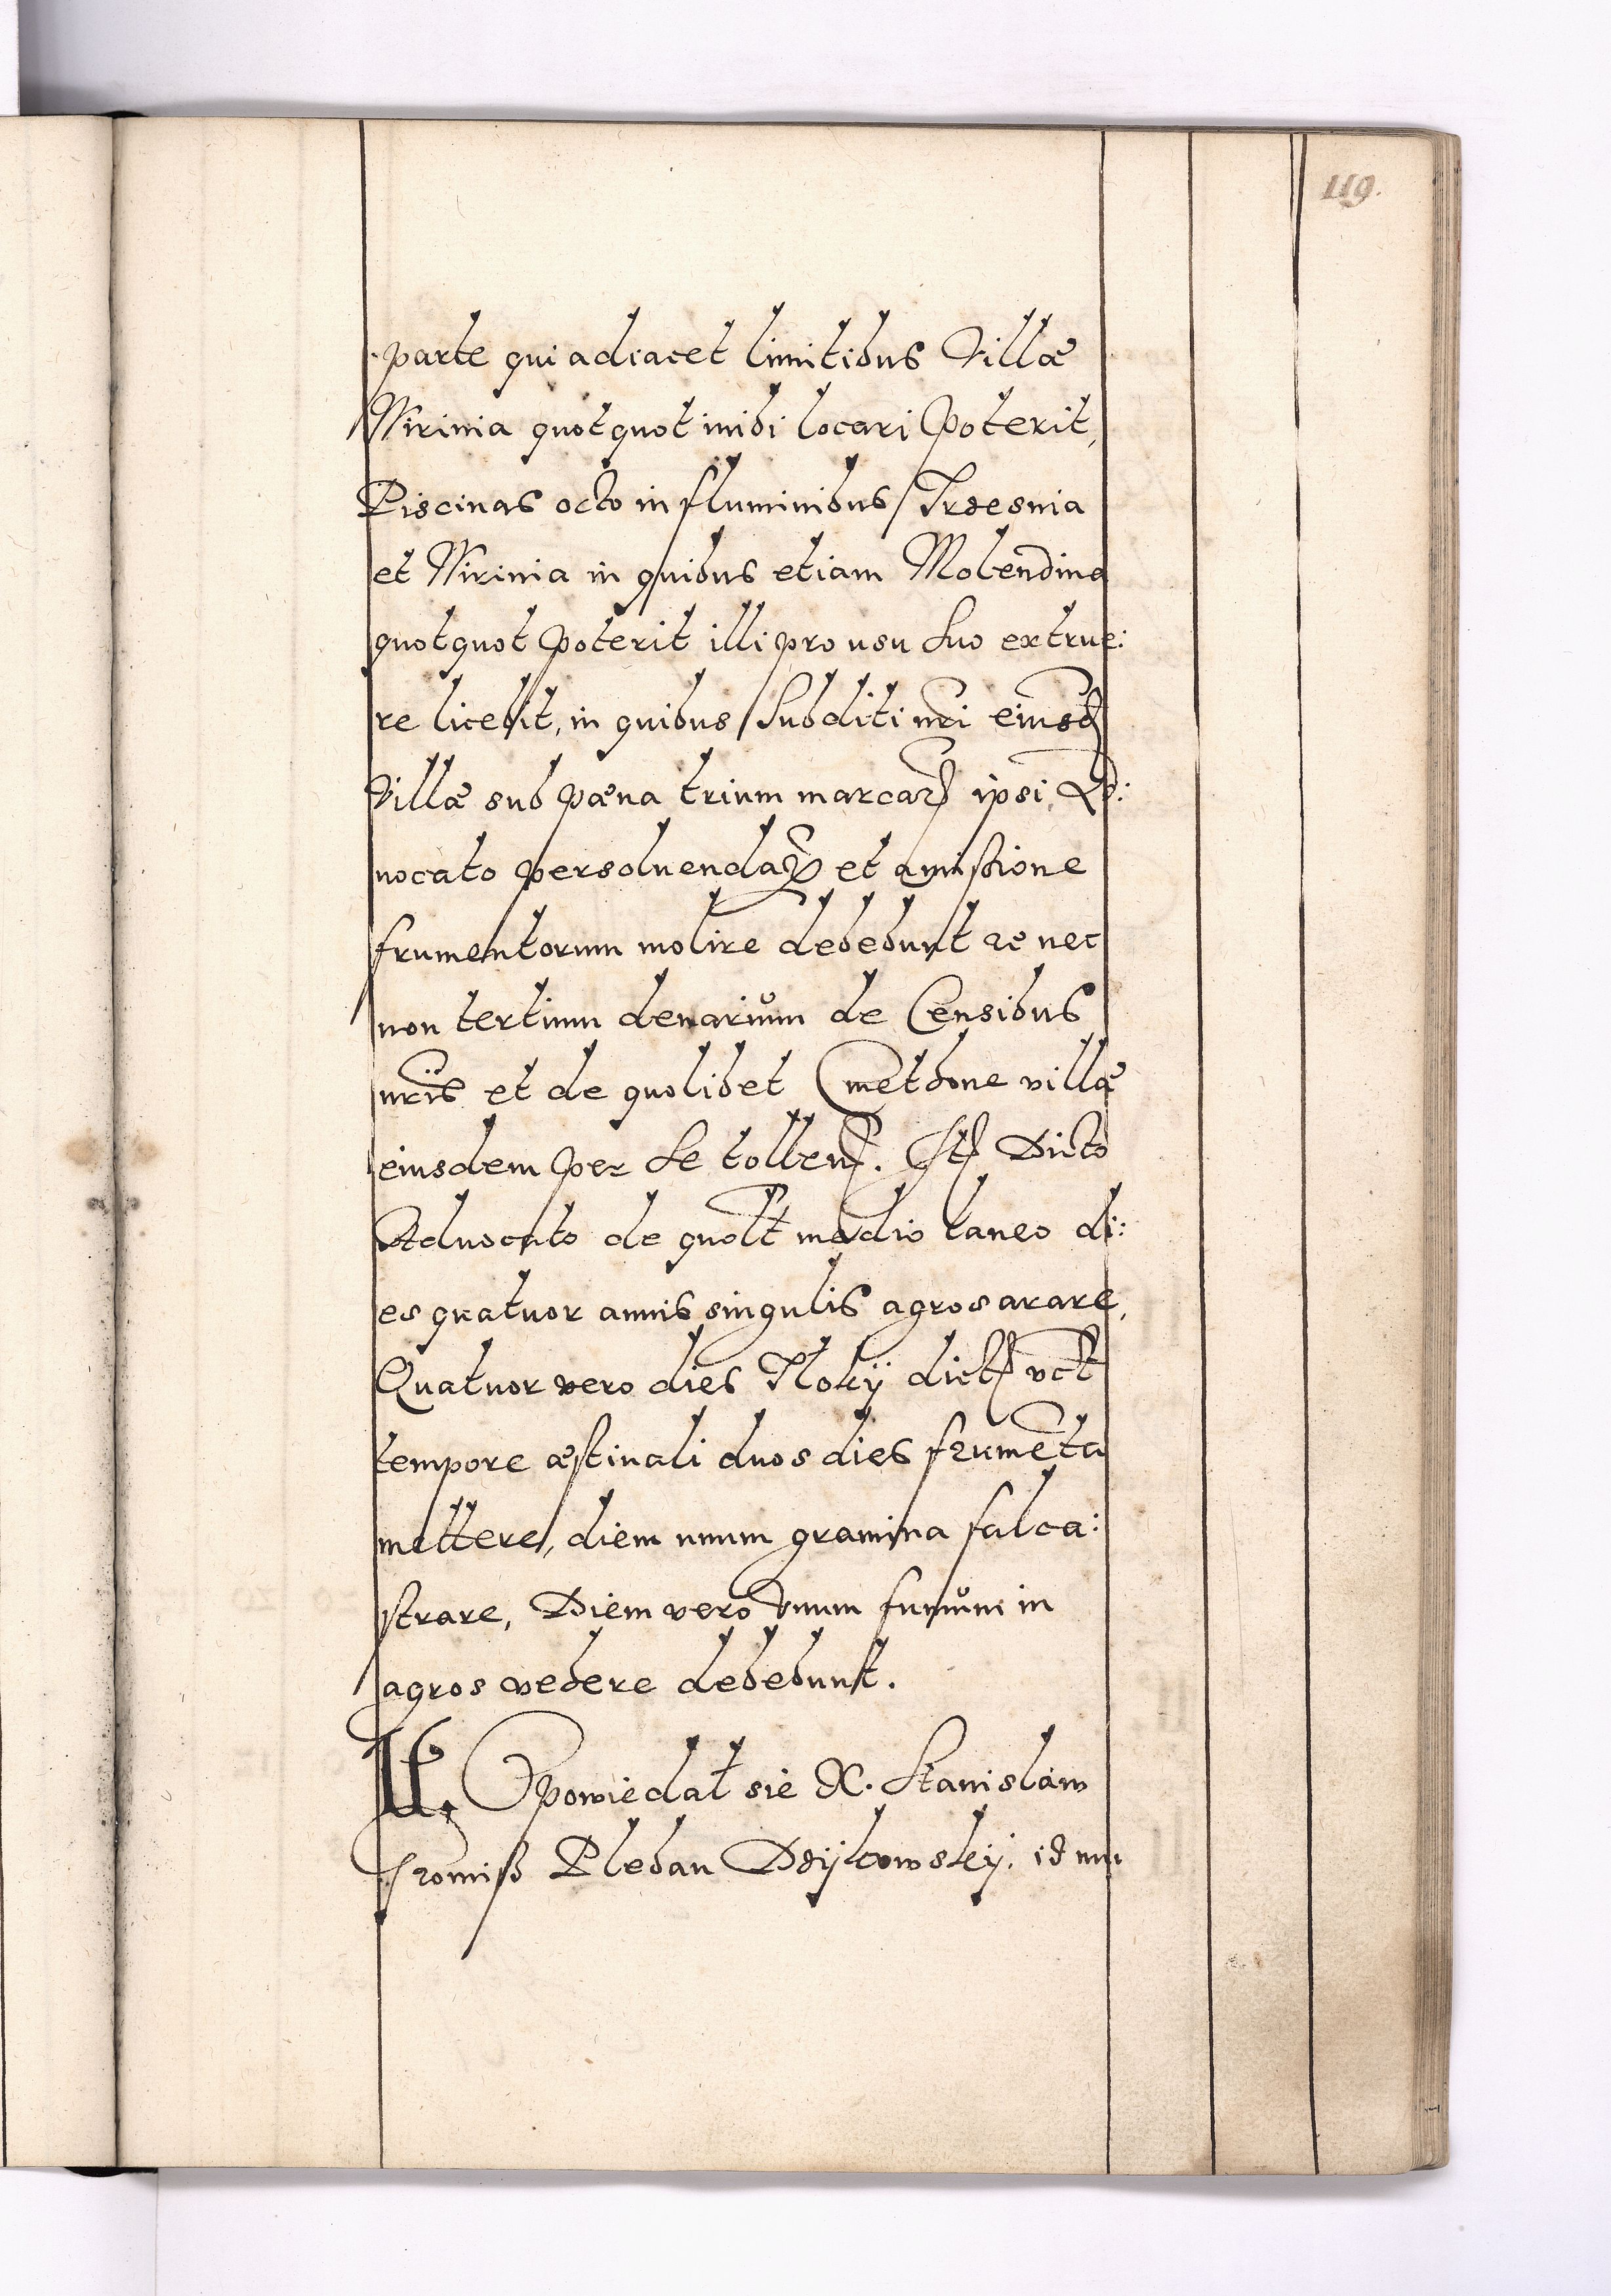 119.
parte qui adiacet limitibus Villæ
Wirinia quotquot inibi locari Poterit,
Piscinas octo in fluminibus Trzesnia
et Wirinia in quibus etiam Molendina
quotquot Poterit illi pro usu Suo extrue:
re licebit, in quibus Subditi nri eiusd
Villæ sub pæna trium marcar ipsi Ad:
uocato persoluendar et amissione
frumentorum molire debebunt ac nec
non tertium denariům de Censibus
nris et de quolibet Cmethone villæ
eiusdem per Se tollen. It Dicto
Aduocato de quolt medio laneo di:
es quatuor annis singulis agros arare,
Quatuor vero dies Tloky dict vct
tempore æstiuali duos dies frumēta
mettere, diem unum gramina falca:
strare, Diem vero Vnum fumům in
agros vehere debebunt.
II. Opowiedał sie X. Stanisław
Sromiß Pleban Dzykowsky. id nu